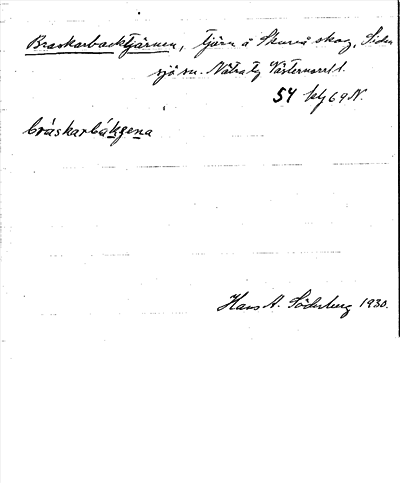 Braskarbacktjärnen, tjärn å Skureå skog, Siden
sjö sn. Nätra tg Västernorrl l.
54 kbl 69 N.
bráskarbákgena
Hans A. Söderberg 1930.